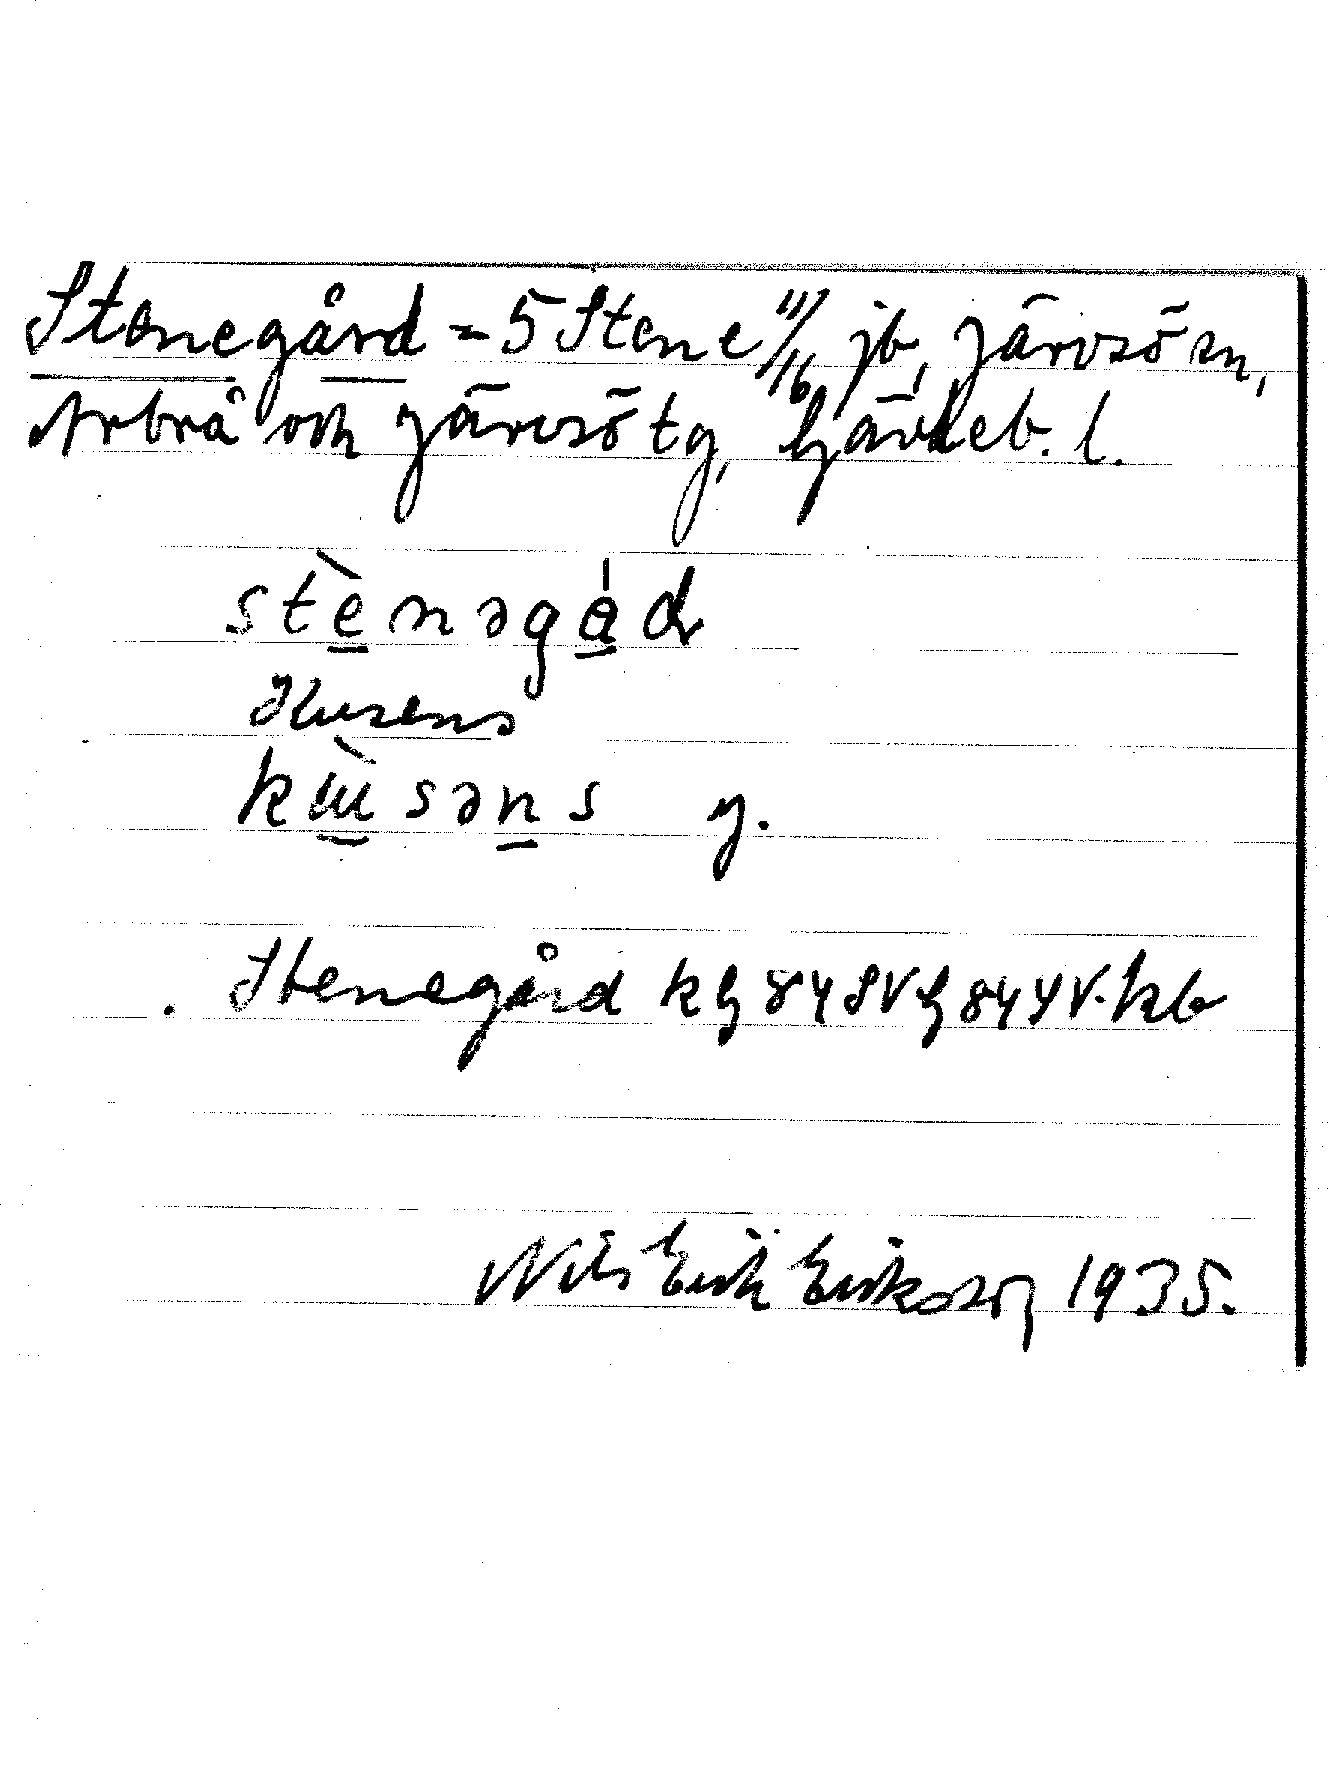 Stenegård = 5 Stene 11/16 jb, Järvsö sn,
Arbrå och Järvsö tg, Gävleb. l.
stènəgåd
Kusens
kùsəns g.
Stenegård kg 84 SV g 844 V. kb
Nils Erik Eriksson 1935.